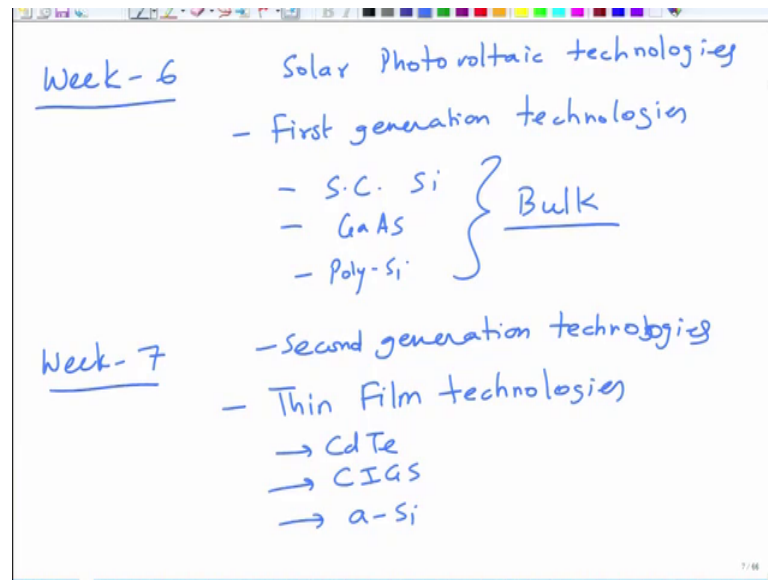 Week-6 Solar Photovoltaic technologies
- First generation technologies
- S.C. Si
- GaAs
- Poly-Si
Bulk
Week-7 - Second generation technologies
- Thin Film technologies
→ CdTe
→ CIGS
→ a-Si
7/66